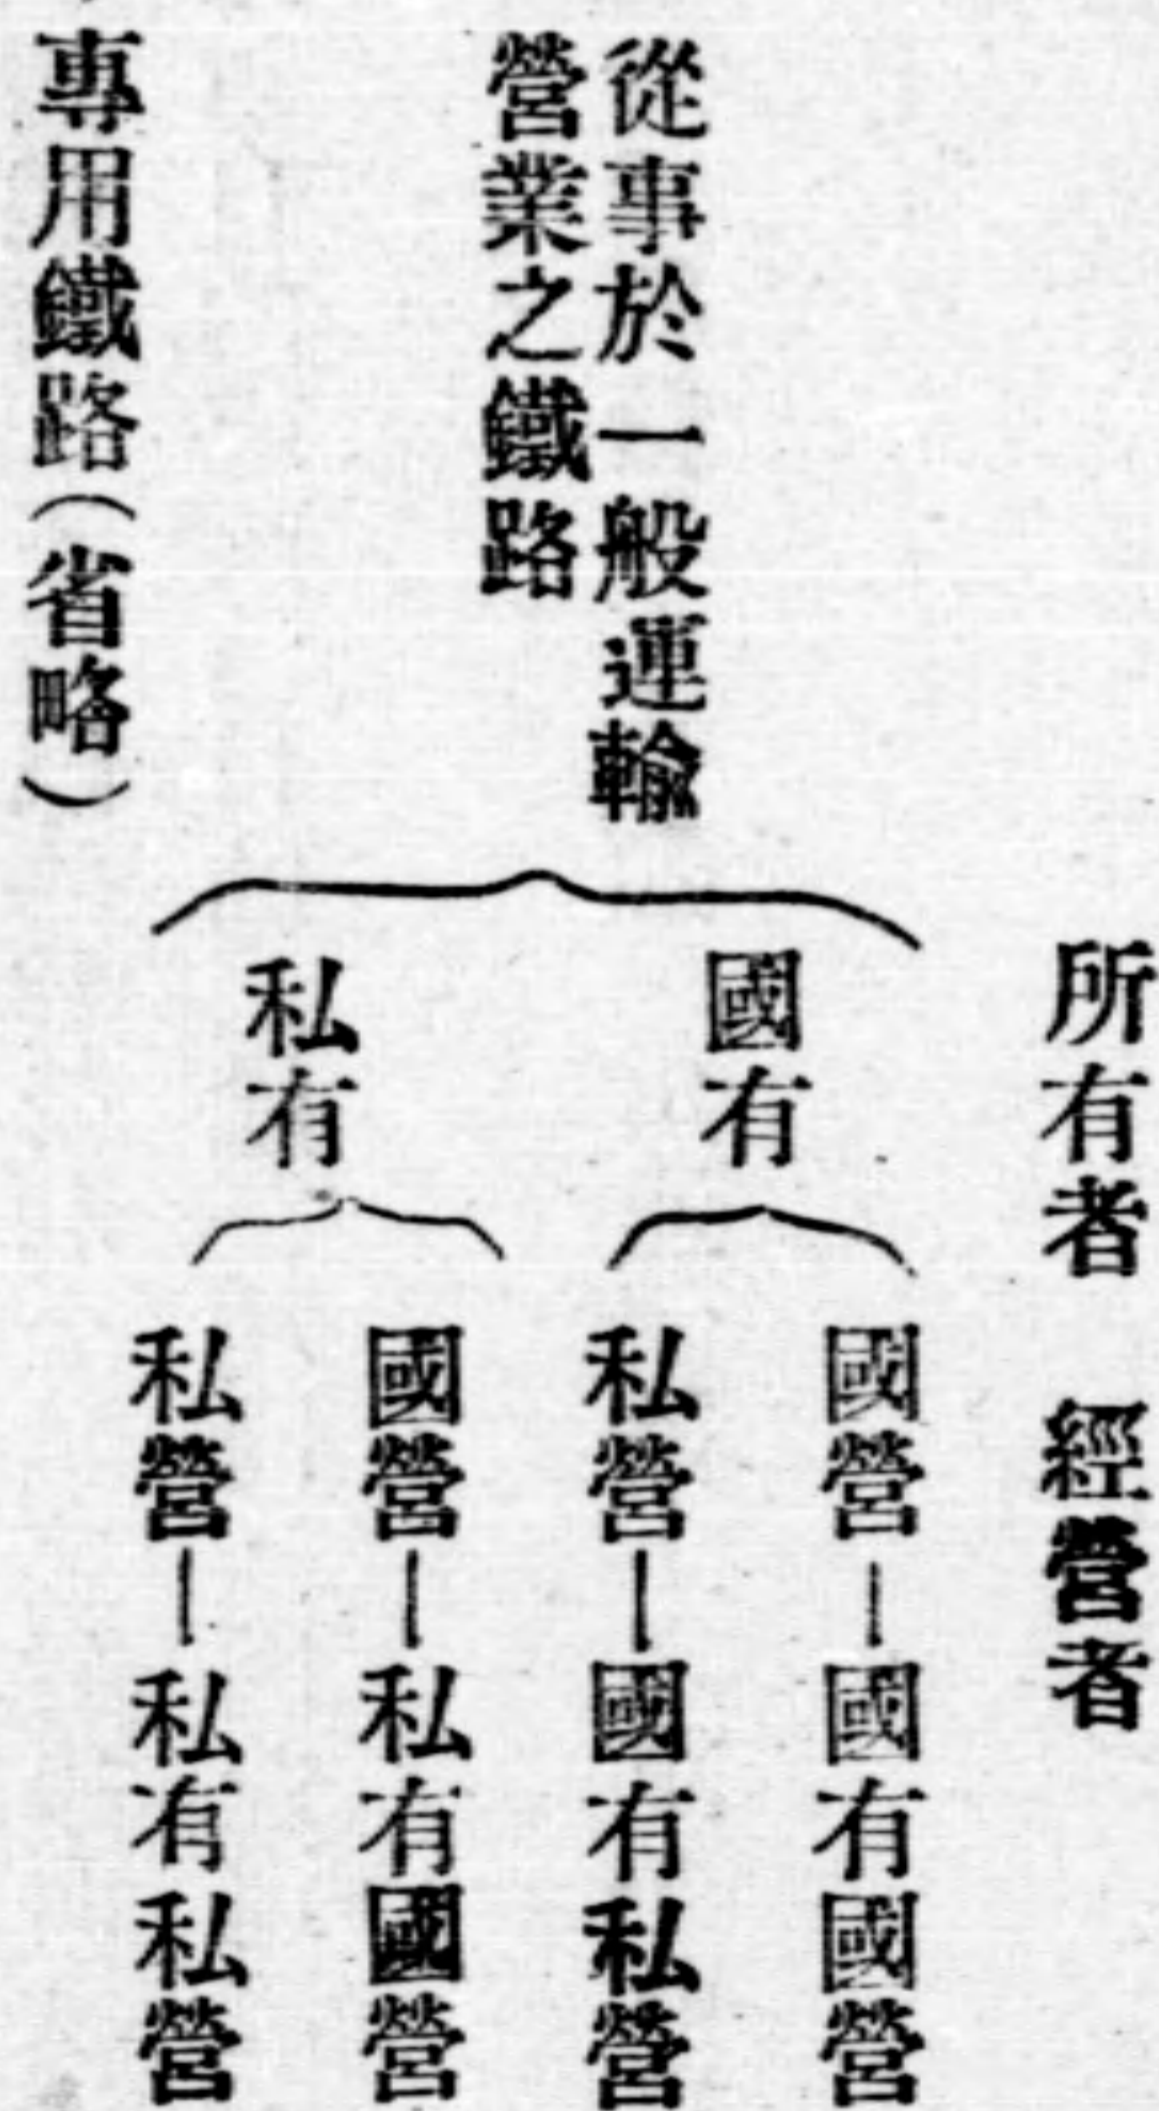 所有者　經營者
從事於一般運輸
營業之鐵路
國有
國營—國有國營
私營—國有私營
私有
國營—私有國營
私營—私有私營
專用鐵路(省略)